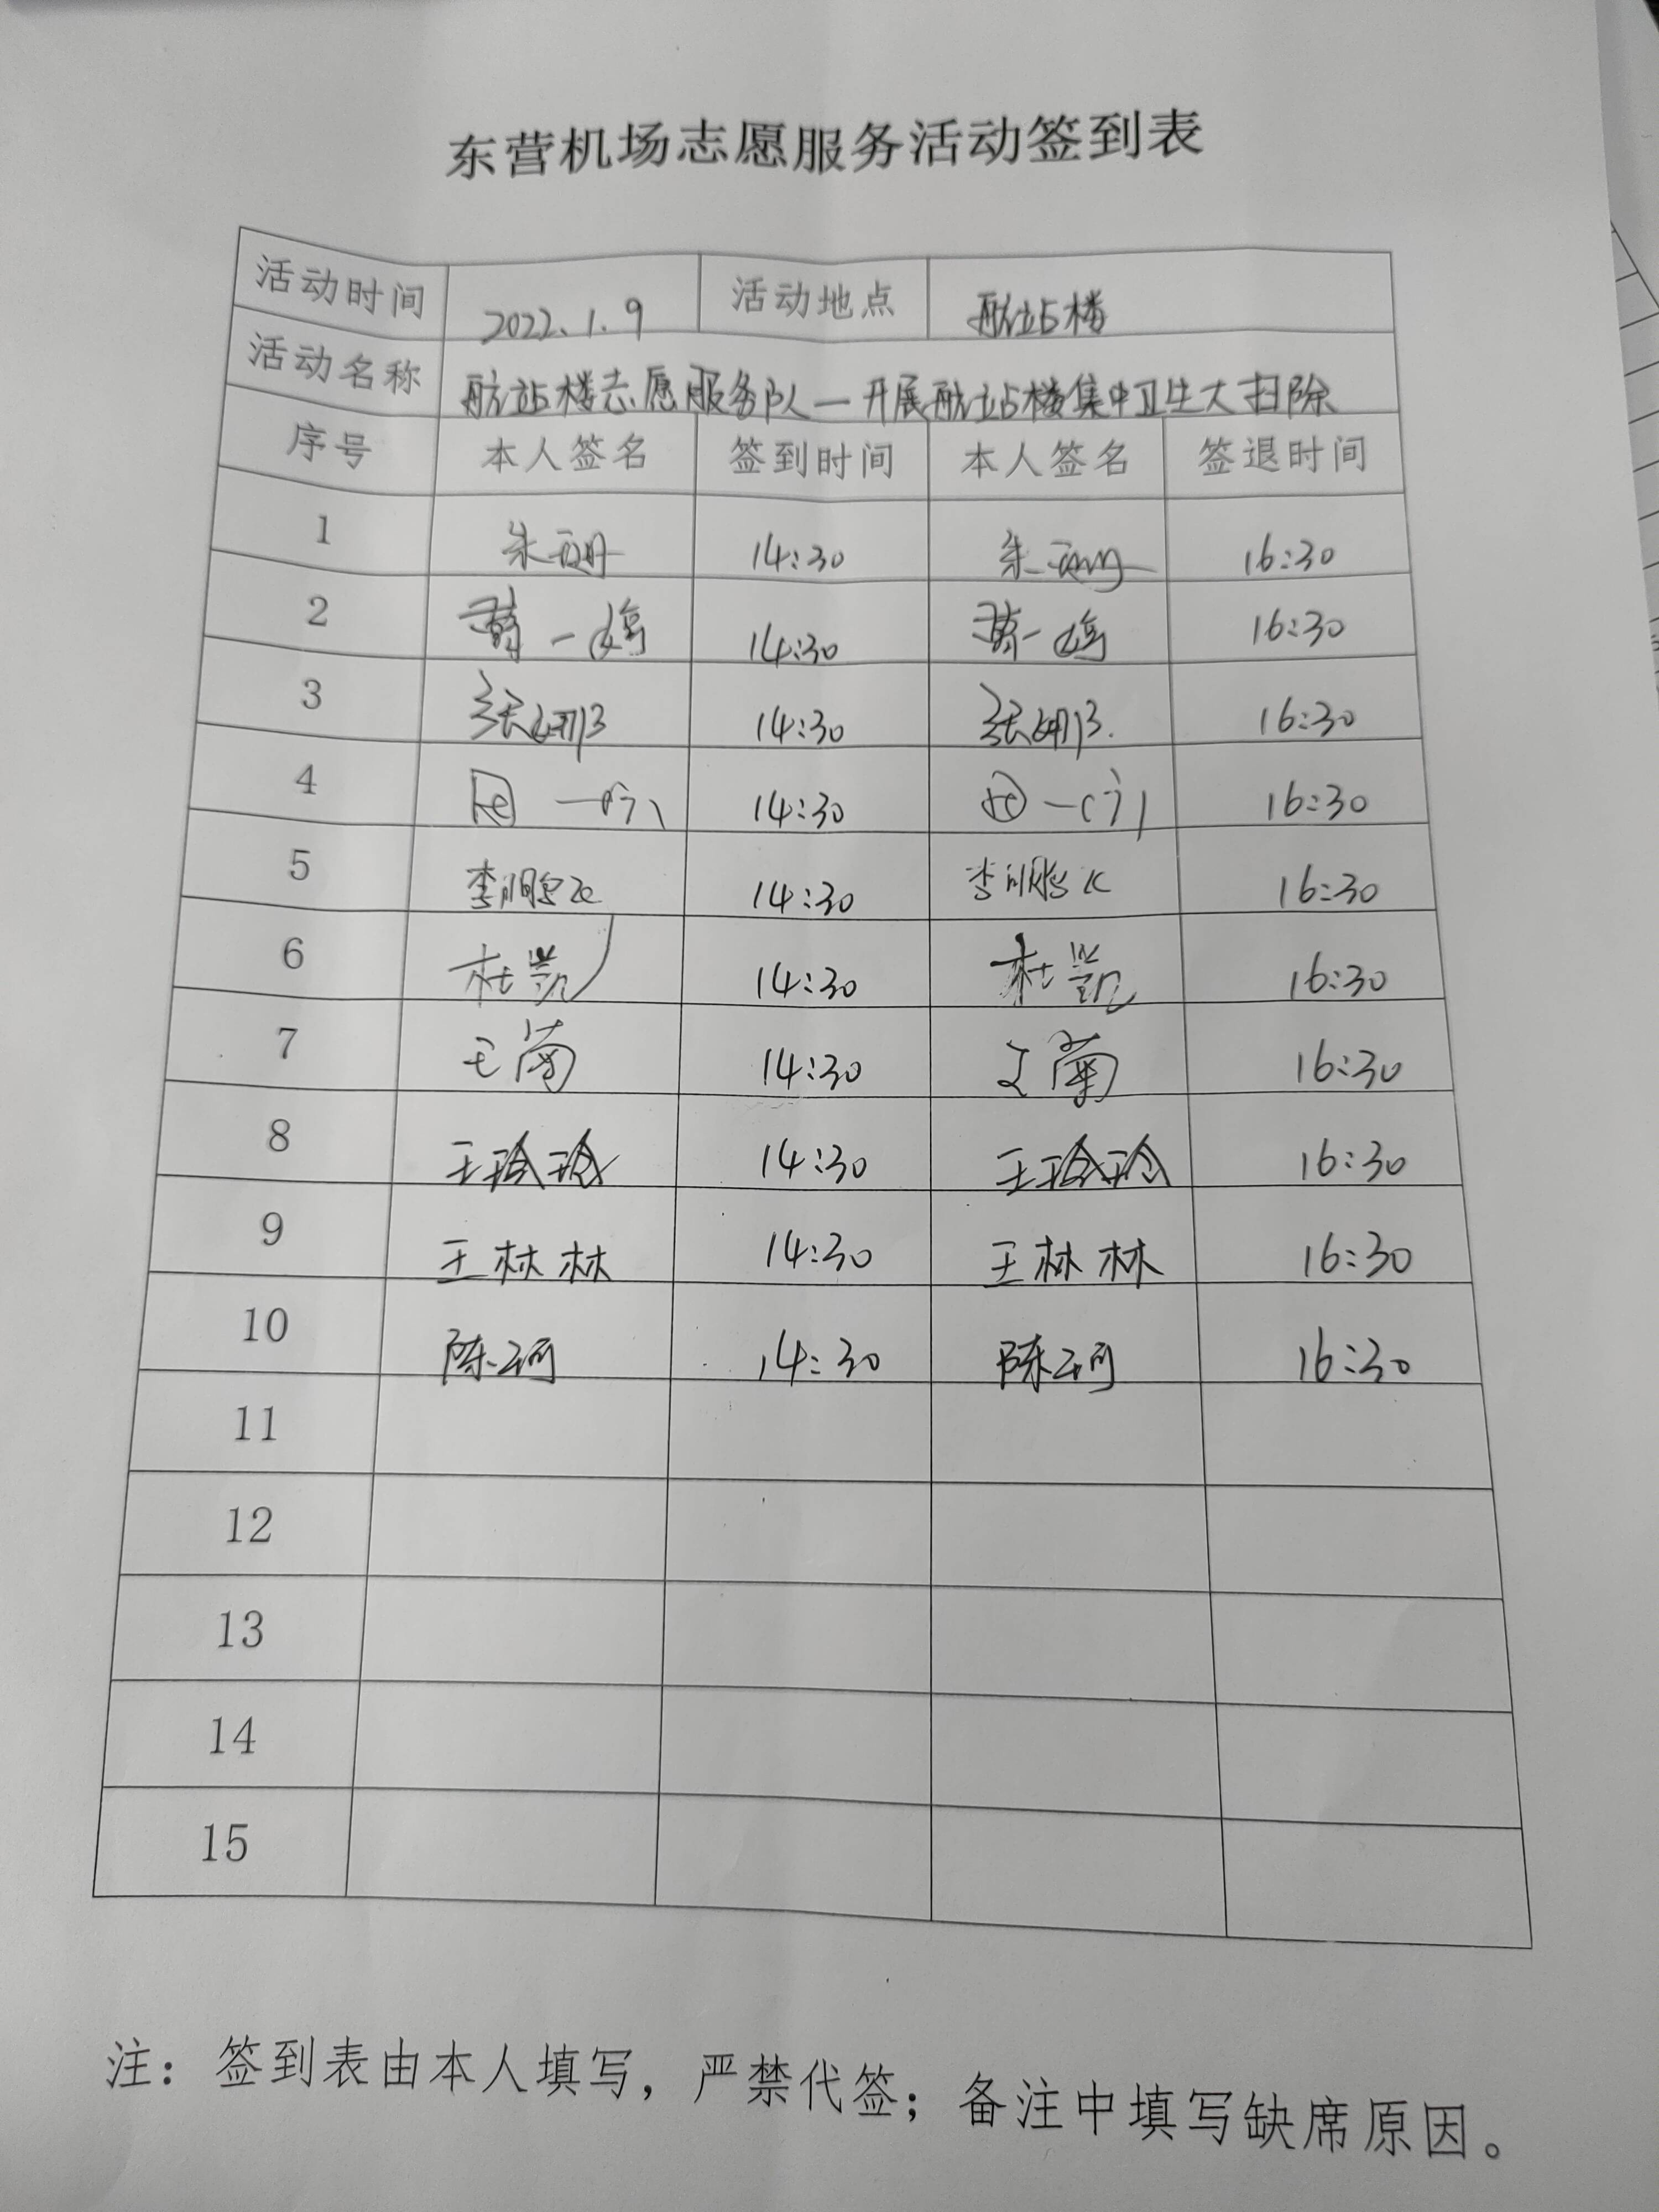 东营机场志愿服务活动签到表
活动时间 2022.1.9 活动地点 航站楼
活动名称 航站楼志愿服务队—开展航站楼集中卫生大扫除
序号 本人签名 签到时间 本人签名 签退时间
1 朱珊 14:30 朱珊 16:30
2 一 14:30 一 16:30
3 张娜 14:30 张娜 16:30
4 14:30 16:30
5 李鹏飞 14:30 李鹏飞 16:30
6 杜凯 14:30 杜凯 16:30
7 王菊 14:30 王菊 16:30
8 王玲玲 14:30 王玲玲 16:30
9 王林林 14:30 王林林 16:30
10 陈珂 14:30 陈珂 16:30
11
12
13
14
15
注：签到表由本人填写，严禁代签；备注中填写缺席原因。